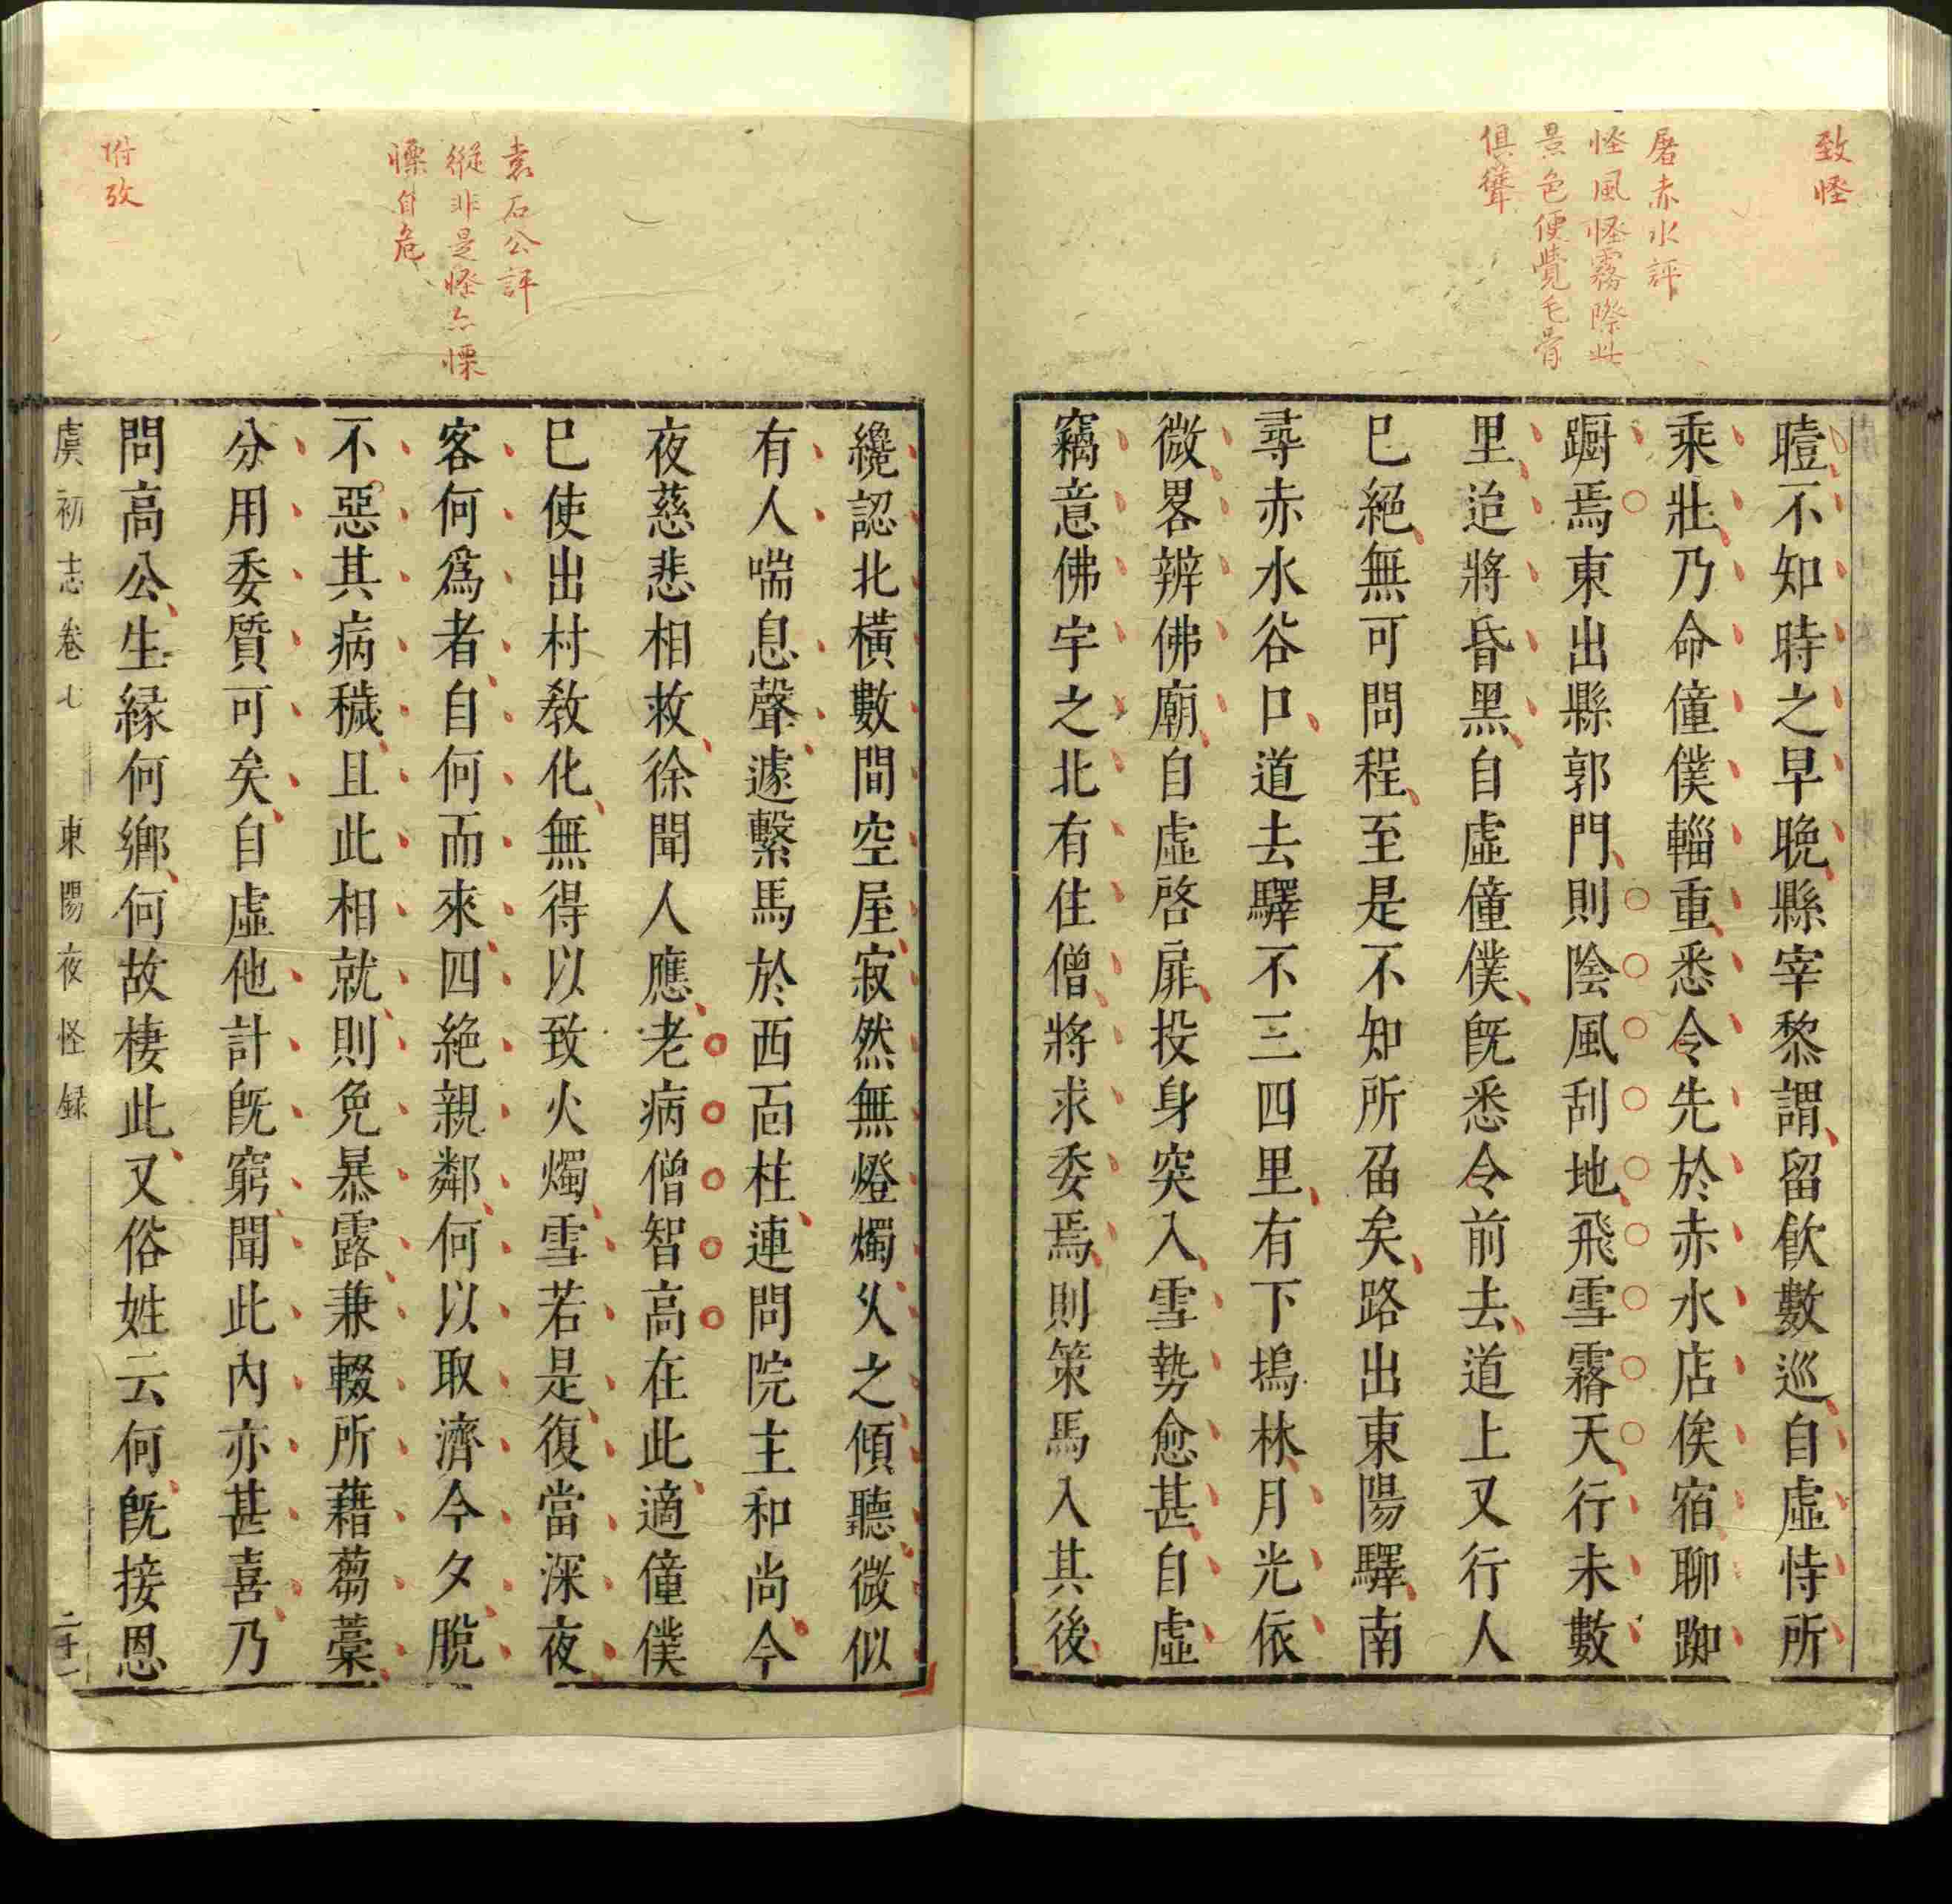 致怪
屠赤水評
怪風怪霧際此
景色便覺毛骨
俱聳
曀不知時之早晚縣宰黎謂留飲數巡自虛恃所
乘壯乃命僮僕輜重悉令先於赤水店俟宿聊踟
蹰焉東出縣郭門則陰風刮地飛雪霿天行未數
里迨將昏黑自虛僮僕既悉令前去道上又行人
已絕無可問程至是不知所届矣路出東陽驛南
尋赤水谷口道去驛不三四里有下塢林月光依
微畧辨佛廟自虛啓扉投身突入雪勢愈甚自虛
竊意佛宇之北有住僧將求委焉則策馬入其後
袁石公評
縱非是怪亦慄
慄自危
附攷
纔認北橫數間空屋寂然無燈燭久之傾聽微似
有人喘息聲遽繫馬於西面柱連問院主和尚今
夜慈悲相救徐聞人應老病僧智高在此適僮僕
已使出村教化無得以致火燭雪若是復當深夜
客何爲者自何而來四絕親鄰何以取濟今夕脫
不惡其病穢且此相就則免暴露兼輟所藉蒭藁
分用委質可矣自虛他計既窮聞此內亦甚喜乃
問高公生緣何鄉何故棲此又俗姓云何既接恩
虞初志卷七 東陽夜怪録 二十一